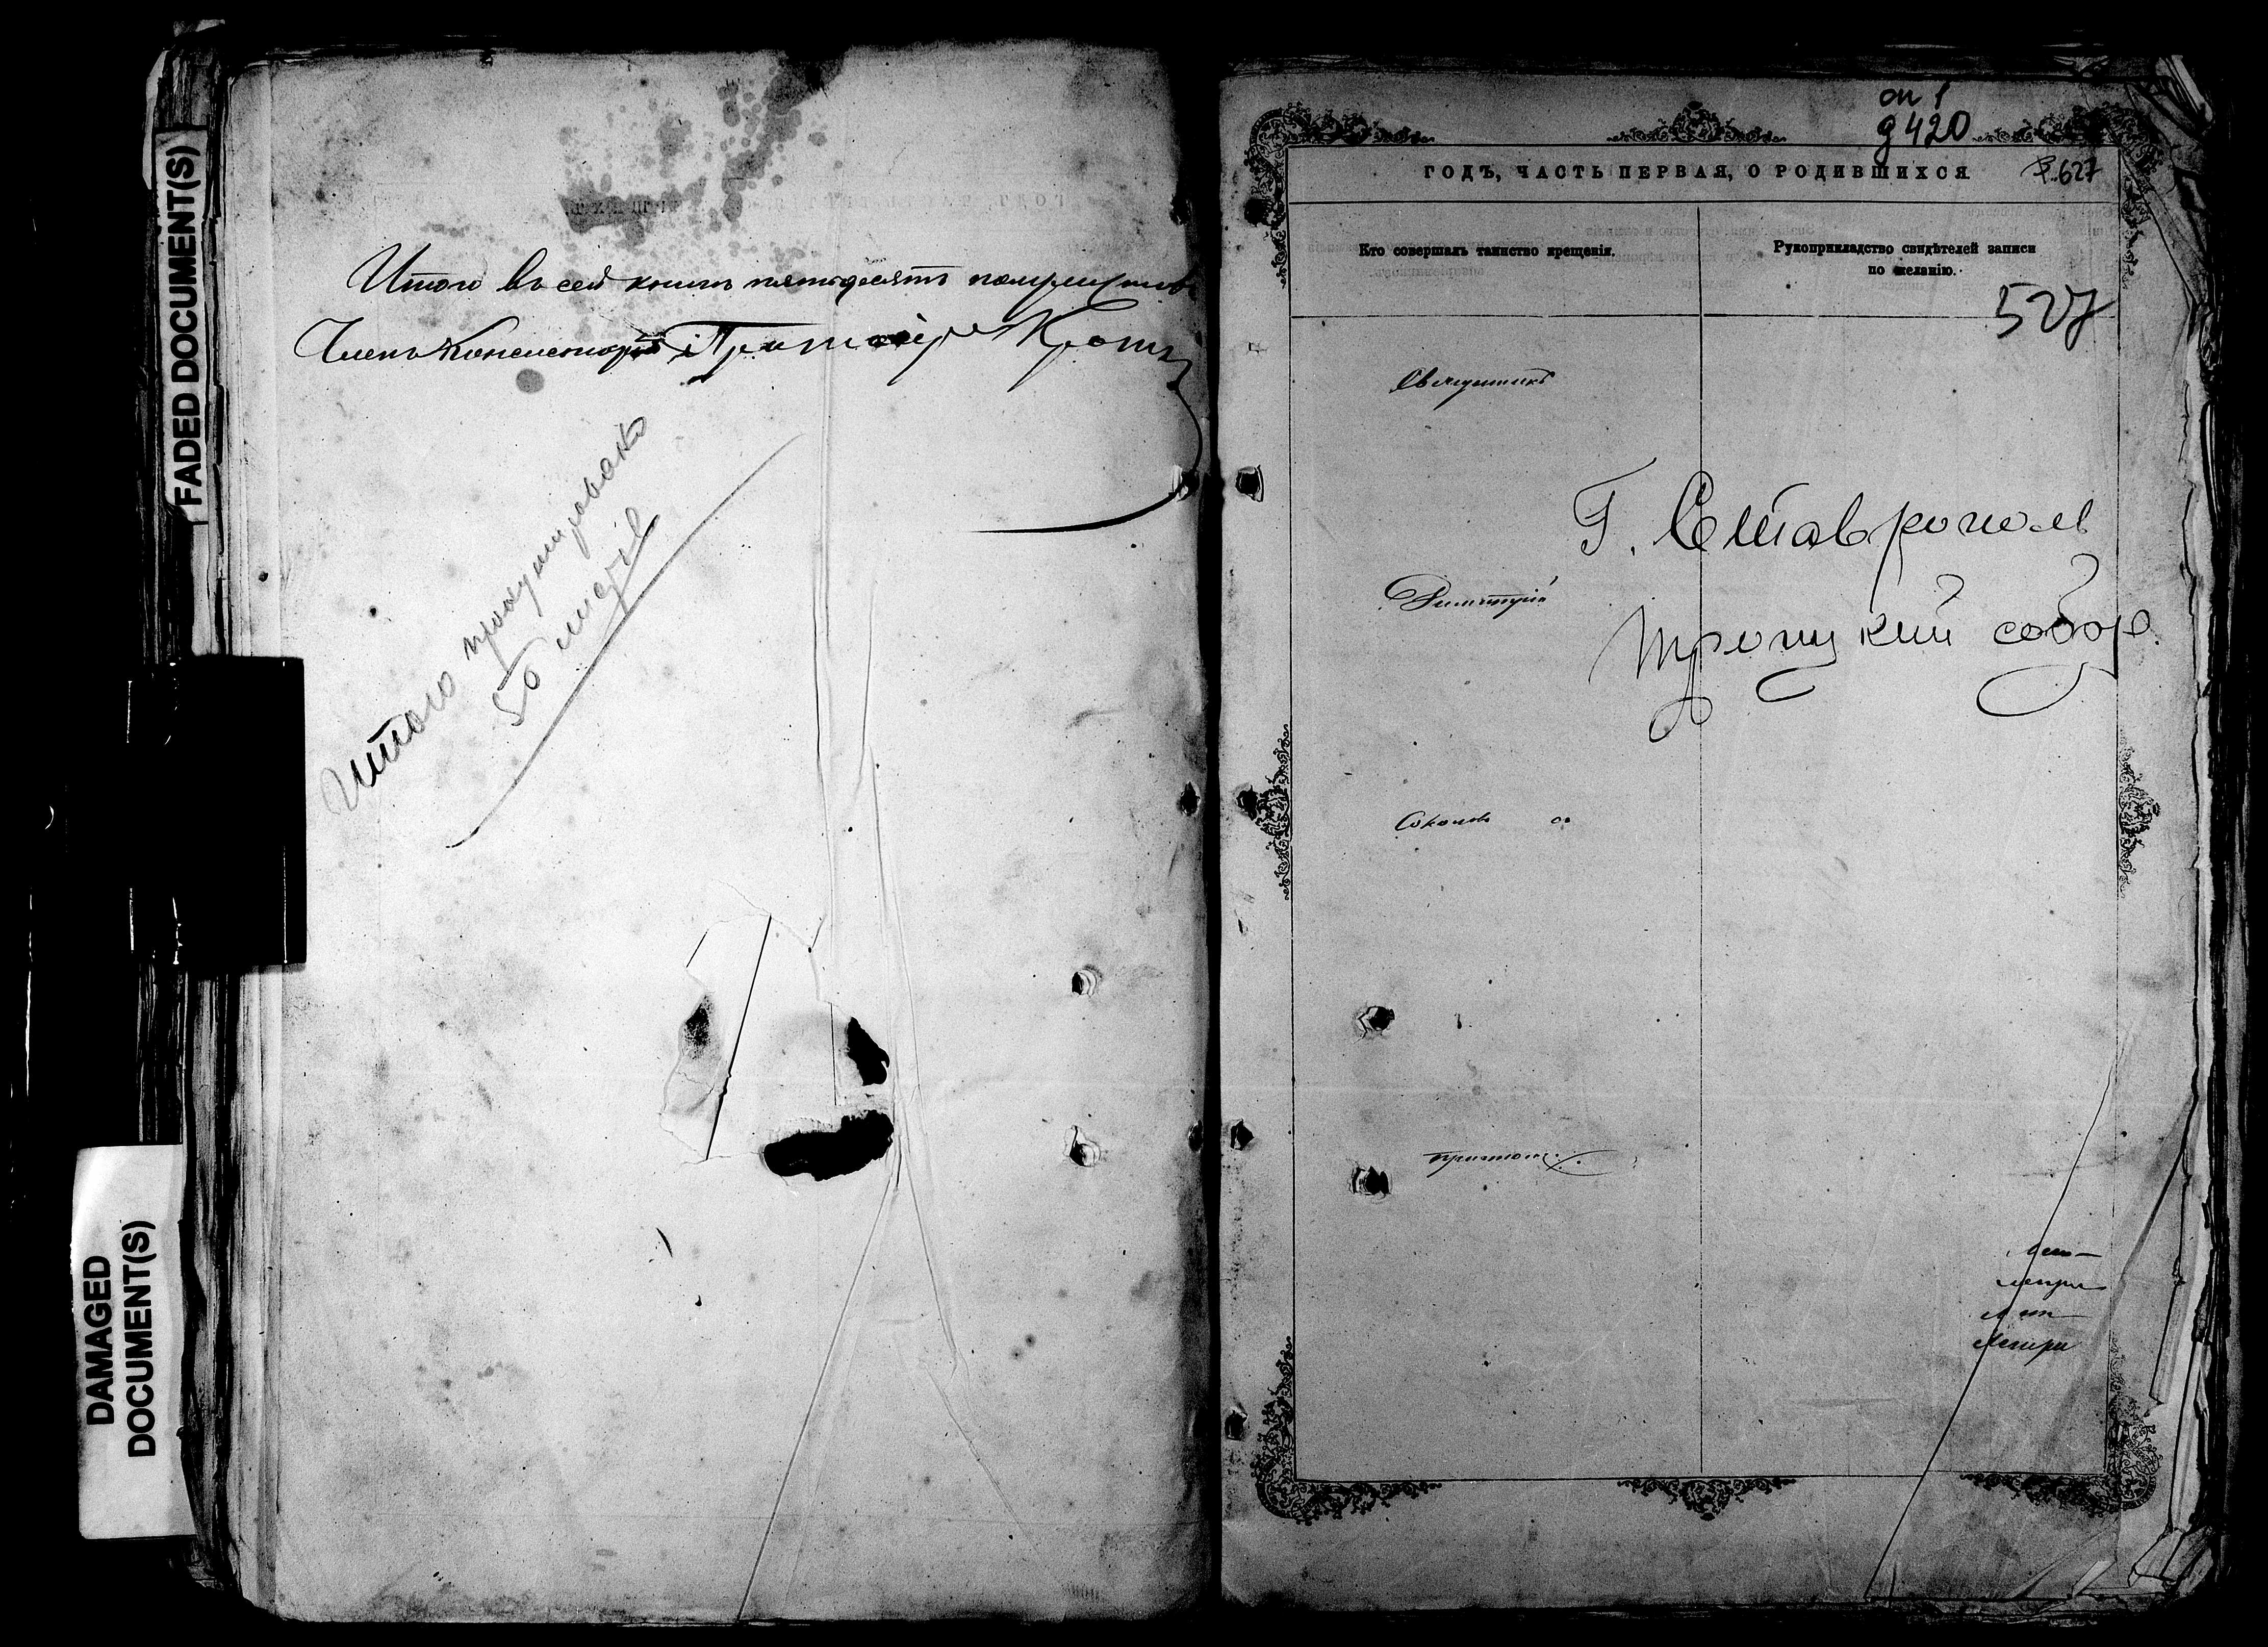 FADED DOCUMENT(S)
DAMAGED
DOCUMENT(S)
Итого въ сей книгѣ пятьдесятъ полулистовъ
Членъ Консисторіи Протоіерей
Итого пронумеровано
50 листов
оп 1
д 420
Ф.627
ГОДЪ, ЧАСТЬ ПЕРВАЯ, О РОДИВШИХСЯ
Кто совершалъ таинство крещенія.
Рукоприкладство свидѣтелей записи
по желанію.
527
Священникъ
Г. Ставрополь
Димитрій
Троицкий собор.
Соколовъ